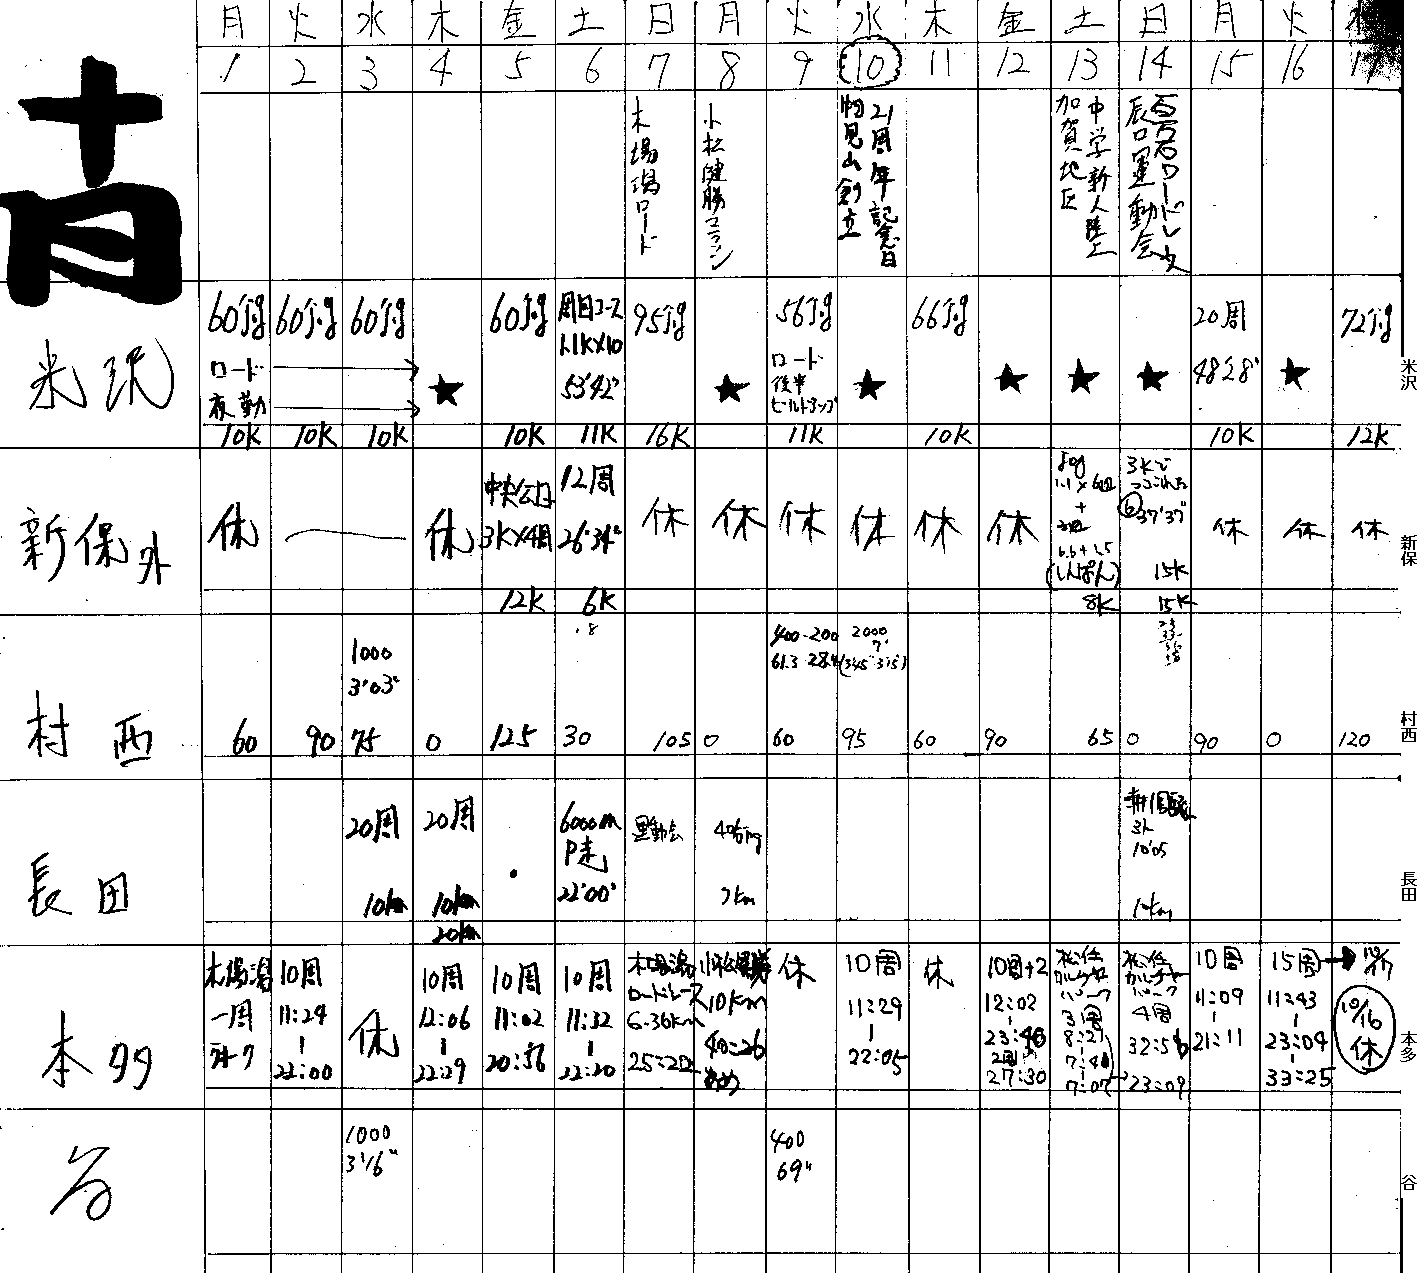 十月
月 火 水 木 金 土 日 月 火 水 木 金 土 日 月 火 木
1 2 3 4 5 6 7 8 9 10 11 12 13 14 15 16 17
木場潟ロード
小松健勝マラソン
21周年記念日
物見山創立
中学新人陸上
加賀地区
百万石ロードレース
辰口運動会
米沢
60分jg 60分jg 60分jg 60分jg 周回コース 95分jg 56分jg 66分jg 20周 72分jg
1.1K×10
ロード 53'42" ロード 48'28"
夜勤 後半
ビルドアップ
★ ★ ★ ★ ★ ★ ★
10K 10K 10K 10K 11K 16K 11K 10K 10K 12K
米沢
新保外
休 休 中央公園 12周 休 休 休 休 休 休 jog 3Kで 休 休 休
3K×4周 26'34"
+
37'37"
6.6+1.5
(しんぱん) 15K
12K 6K 8K 15K
新保
村西
1000 400-200 2000
3'03" 61.3 28.4 7'
(3'45" 3'15")
60 90 75 0 125 30 105 0 60 95 60 90 65 0 90 0 120
村西
長田
20周 20周 6000m 運動会 40分jog
P走 3K
22'00" 10'05
10km 10km 7km 10km
20km
長田
本多
木場潟 10周 休 10周 10周 10周 木場潟 小松健勝 休 10周 休 10周+2 松任 松任 10周 15周
一周 11:24 12:06 11:02 11:32 ロードレース 10km 11:29 12:02 カルチャー カルチャー 11:09 11:43
22:00 22:29 20:56 22:20 6.36km 40:26 22:05 23:46 パーク パーク 21:11 23:04
25:22 2周 3周 4周 33:25
27:30 8:21 32:56
7:40 23:09
7:07
10/16
休
本多
谷
1000 400
3'16" 69"
谷